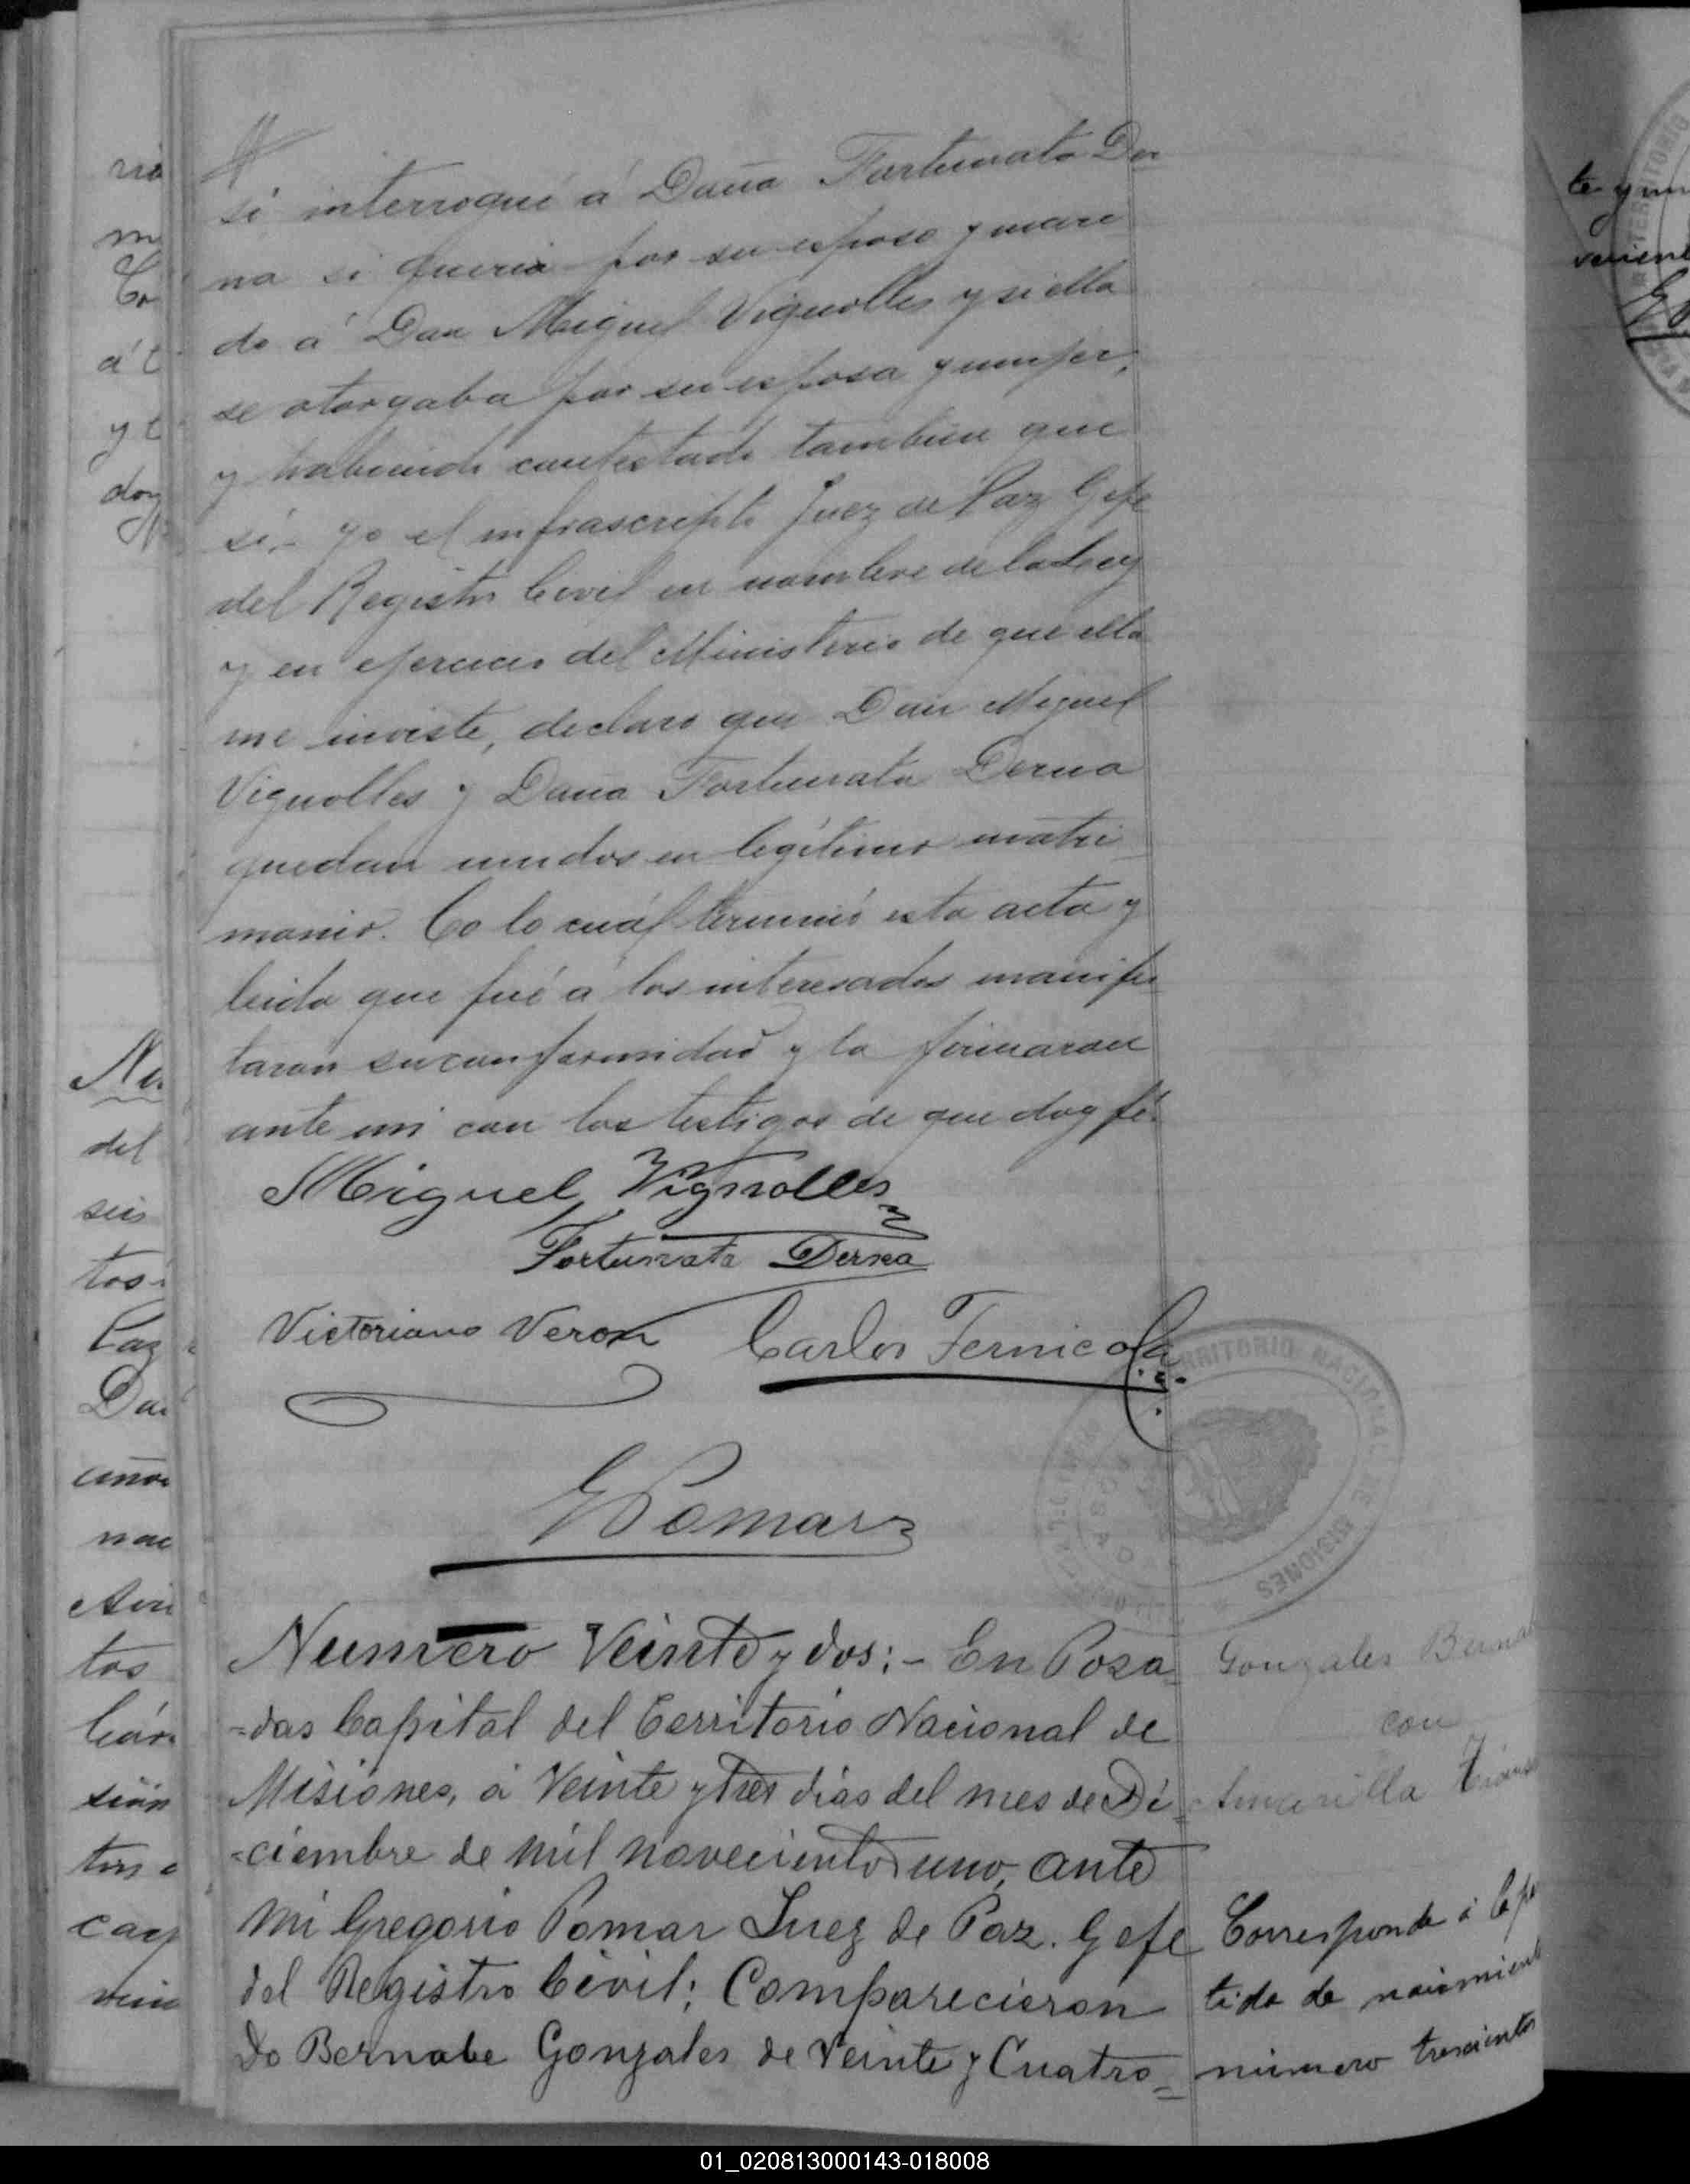 si interrogué á Doña Fortunata Der
na si queria por su esposo y mari
do á Don Miguel Vignolles y si ella
se otorgaba por su esposa y mujer,
y habiendo contestado tambien que
sí. yo el infrascripto Juez de Paz Gefe
del Registro Civil en nombre de la Ley
y en ejercicio del Ministerio de que ella
me inviste, declaro que Don Miguel
Vignolles y Doña Fortunata Derna
quedan unidos en legítimo matri
monio. Co lo cuál terminó esta acta y
leida que fué á los interesados manifes
taron su conformidad y la firmaron
ante mi con los testigos de que doy fé.
Miguel Vignolles
Fortunata Derna
Victoriano Veron Carlos Fernicola
TERRITORIO NACIONAL DE MISIONES
POSADAS
GPomar
Numero Veinte y dos:- En Posa
=das Capital del Territorio Nacional de
Misiones, á Veinte y Tres dias del mes de Di
=ciembre de mil novecientos uno, ante
mi Gregorio Pomar Juez de Paz. Gefe
del Registro Civil; Comparecieron
Do Bernabe Gonzales de Veinte y Cuatro=
Gonzales
con
Corresponde á
tida de
número trescientos
ria
m
á t
y t
doy
del
seis
tos
Paz
años
nac
tos
sión
vein
te y
01_020813000143-018008